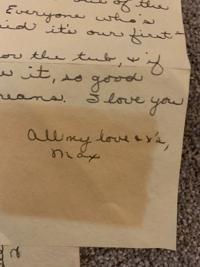 of the
Everyone who's
it's our first
the tub, & if
it, so good
means. I love you
All my love & x's,
Max